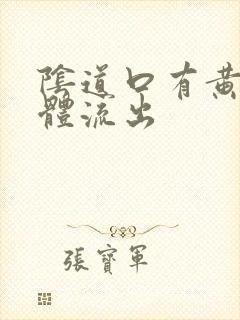 陰道口有黃
體流出
張寶軍